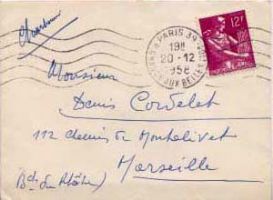 PARIS 39
18H
20-12
1958
12F
Monsieur
Denis Cordelet
112 chemin de Montolivet
Marseille
(Bch du Rhône)